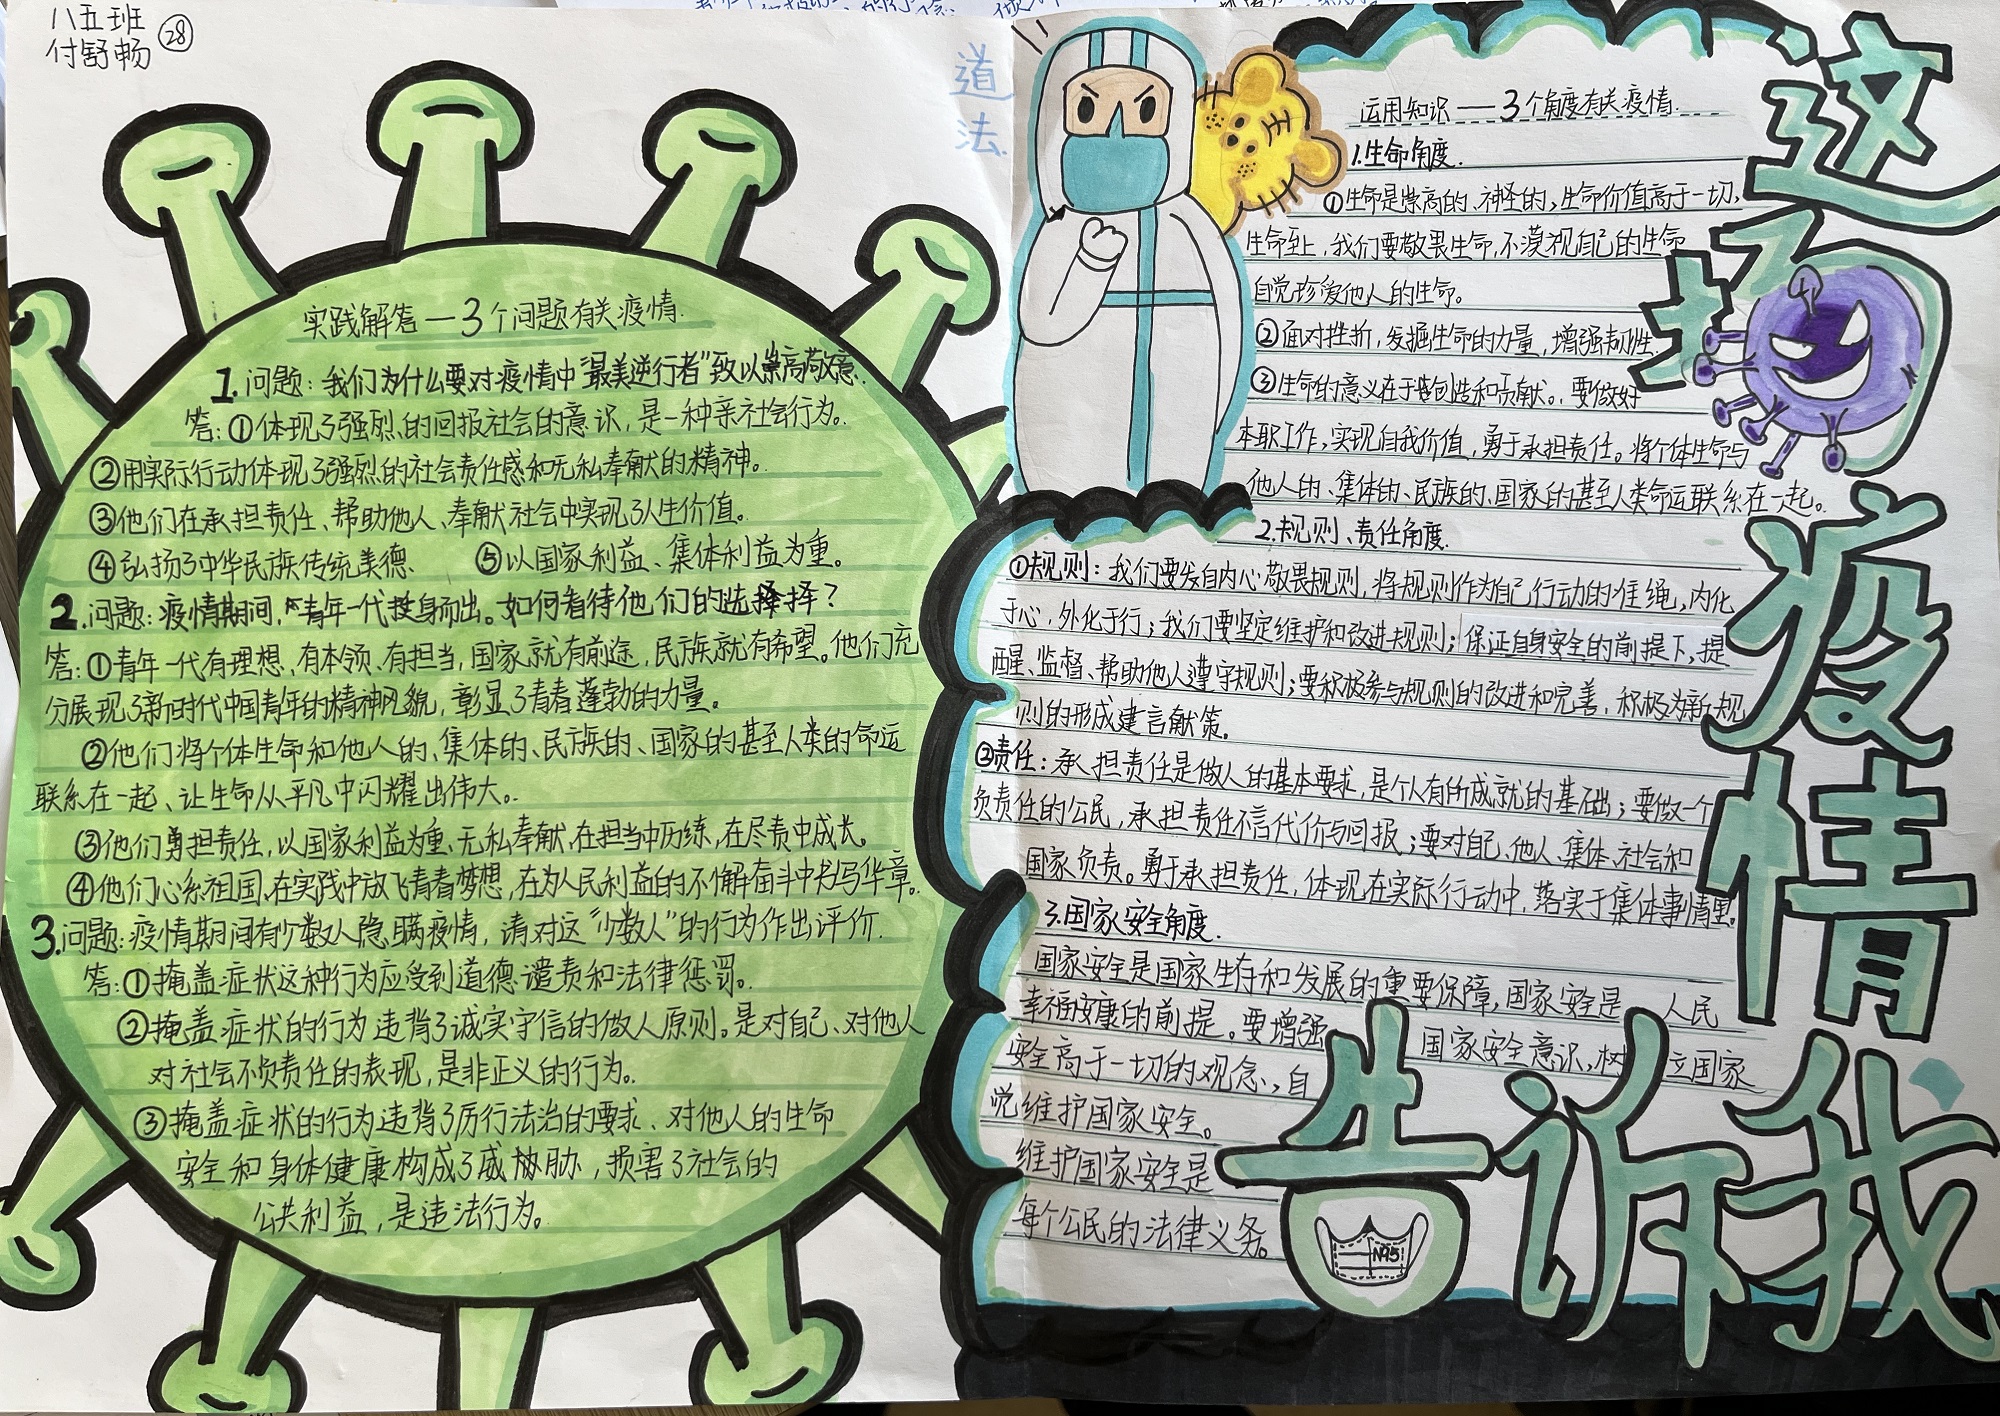 八五班
付舒畅 28
道法
实践解答—3个问题有关疫情.
1.问题：我们为什么要对疫情中“最美逆行者”致以崇高敬意.
答：①体现了强烈的回报社会的意识，是一种亲社会行为。
②用实际行动体现了强烈的社会责任感和无私奉献的精神。
③他们在承担责任、帮助他人、奉献社会中实现了人生价值。
④弘扬了中华民族传统美德. ⑤以国家利益、集体利益为重。
2.问题：疫情期间，青年一代挺身而出。如何看待他们的选择？
答：①青年一代有理想、有本领、有担当，国家就有前途，民族就有希望。他们充
分展现了新时代中国青年的精神风貌，彰显了青春蓬勃的力量。
②他们将个体生命和他人的、集体的、民族的、国家的甚至人类的命运
联系在一起、让生命从平凡中闪耀出伟大。
③他们勇担责任，以国家利益为重、无私奉献，在担当中历练，在尽责中成长。
④他们心系祖国，在实践中放飞青春梦想，在为人民利益的不懈奋斗中书写华章。
3.问题：疫情期间有少数人隐瞒疫情，请对这“少数人”的行为作出评价.
答：①掩盖症状这种行为应受到道德谴责和法律惩罚。
②掩盖症状的行为违背了诚实守信的做人原则。是对自己、对他人
对社会不负责任的表现，是非正义的行为。
③掩盖症状的行为违背了厉行法治的要求、对他人的生命
安全和身体健康构成了威胁，损害了社会的
公共利益，是违法行为。
运用知识—3个角度有关疫情.
1.生命角度.
①生命是崇高的、神圣的，生命价值高于一切，
生命至上，我们要敬畏生命，不漠视自己的生命
自觉珍爱他人的生命。
②面对挫折，发掘生命的力量，增强韧性.
③生命的意义在于创造和贡献。要做好
本职工作，实现自我价值，勇于承担责任。将个体生命与
他人的、集体的、民族的、国家的甚至人类命运联系在一起。
2.规则、责任角度.
①规则：我们要发自内心敬畏规则，将规则作为自己行动的准绳，内化
于心，外化于行；我们要坚定维护和改进规则；保证自身安全的前提下，提
醒、监督、帮助他人遵守规则；要积极参与规则的改进和完善，积极为新规
则的形成建言献策。
②责任：承担责任是做人的基本要求，是个人有所成就的基础；要做一个
负责任的公民，承担责任不言代价与回报；要对自己、他人、集体、社会和
国家负责。勇于承担责任，体现在实际行动中，落实于集体事情里。
3.国家安全角度.
国家安全是国家生存和发展的重要保障，国家安全是 人民
幸福安康的前提。要增强 国家安全意识，树 立国家
安全高于一切的观念，自
觉维护国家安全。
维护国家安全是
每个公民的法律义务。
这场疫情
告诉我
N95